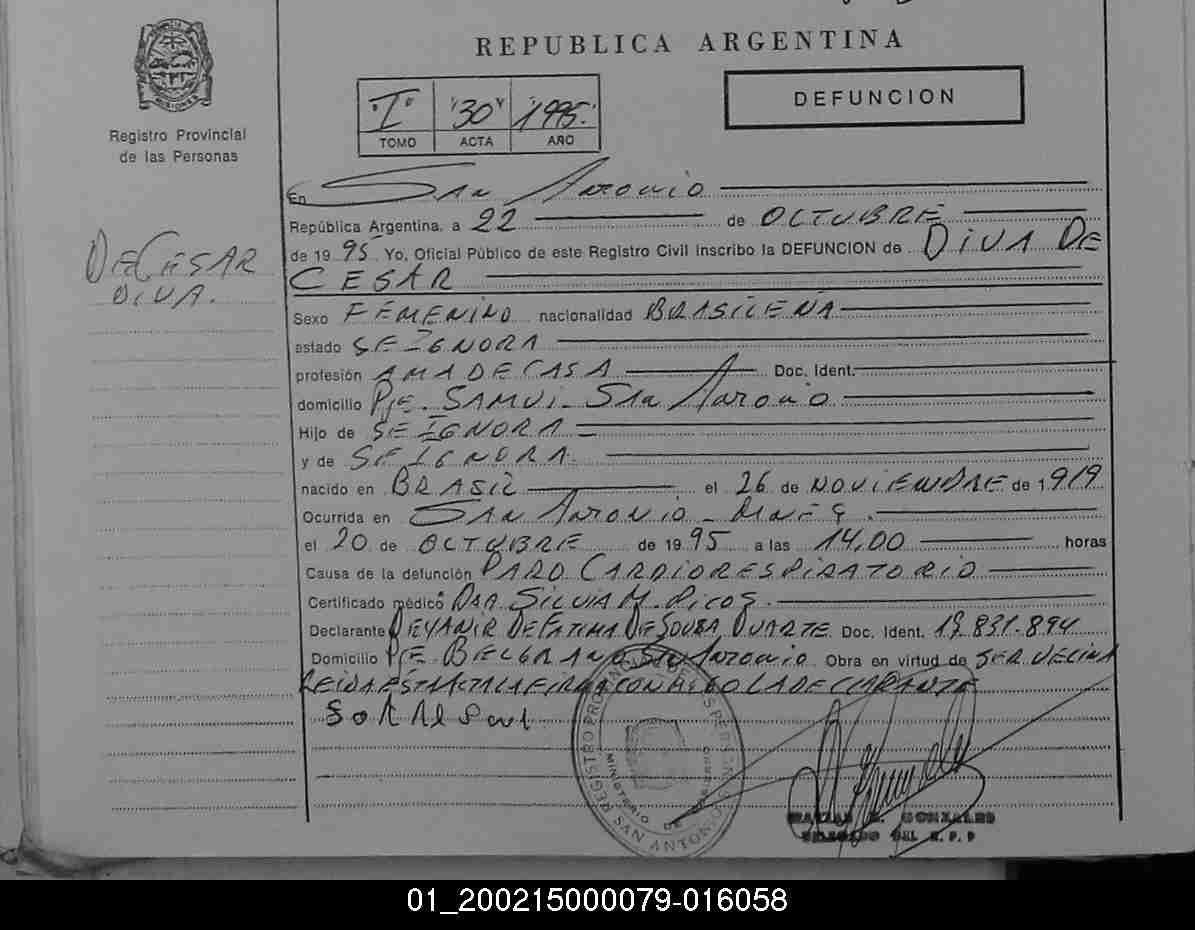 REPUBLICA ARGENTINA
MISIONES
Registro Provincial
de las Personas
"I" "30" 1995.
TOMO ACTA AÑO
DEFUNCION
En San Antonio
República Argentina, a 22 de OCTUBRE
de 1995 Yo, Oficial Público de este Registro Civil inscribo la DEFUNCION de DIVA DE
CESAR
DE CESAR
DIVA.
Sexo FEMENINO nacionalidad BRASILEÑA
estado SE IGNORA
profesión AMA DE CASA Doc. Ident.
domicilio PJE. SAMUI - San Antonio
Hijo de SE IGNORA
y de SE IGNORA.
nacido en BRASIL el 26 de NOVIEMBRE de 1919
Ocurrida en SAN ANTONIO - MNES.
el 20 de OCTUBRE de 1995 a las 14,00 horas
Causa de la defunción PARO CARDIORESPIRATORIO
Certificado médico DRA SILVIA M. PICOS.
Declarante DEYANIR DE FATIMA DE SOUSA DUARTE Doc. Ident. 19.831.894
Domicilio PJE BELGRANO San Antonio. Obra en virtud de SER VECINA
LEIDA ESTA ACTA LA FIRMA CONMIGO LA DECLARANTE
REGISTRO PROVINCIAL DE LAS PERSONAS
MINISTERIO DE GOBIERNO
SAN ANTONIO
GONZALES
DELEGADO DEL R. P. P
01_200215000079-016058